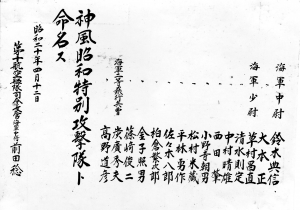 海軍中尉 鈴木典信
大本正
海軍少尉 草村昌直
清水則定
中村晴雄
西田華
小野寺朝男
松村米蔵
平林勇作
佐木八郎
柏倉繁次郎
金子照男
篠崎俊二
海軍二等飛行兵曹
廣秀夫
高野道彦
神風昭和特別攻撃隊ト
命名ス
昭和二十年四月十二日
第十航空艦隊司令長官 前田稔